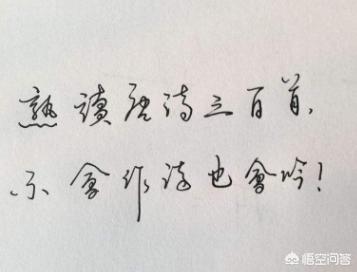 熟讀唐诗三百首,
不會作诗也會吟!
悟空问答